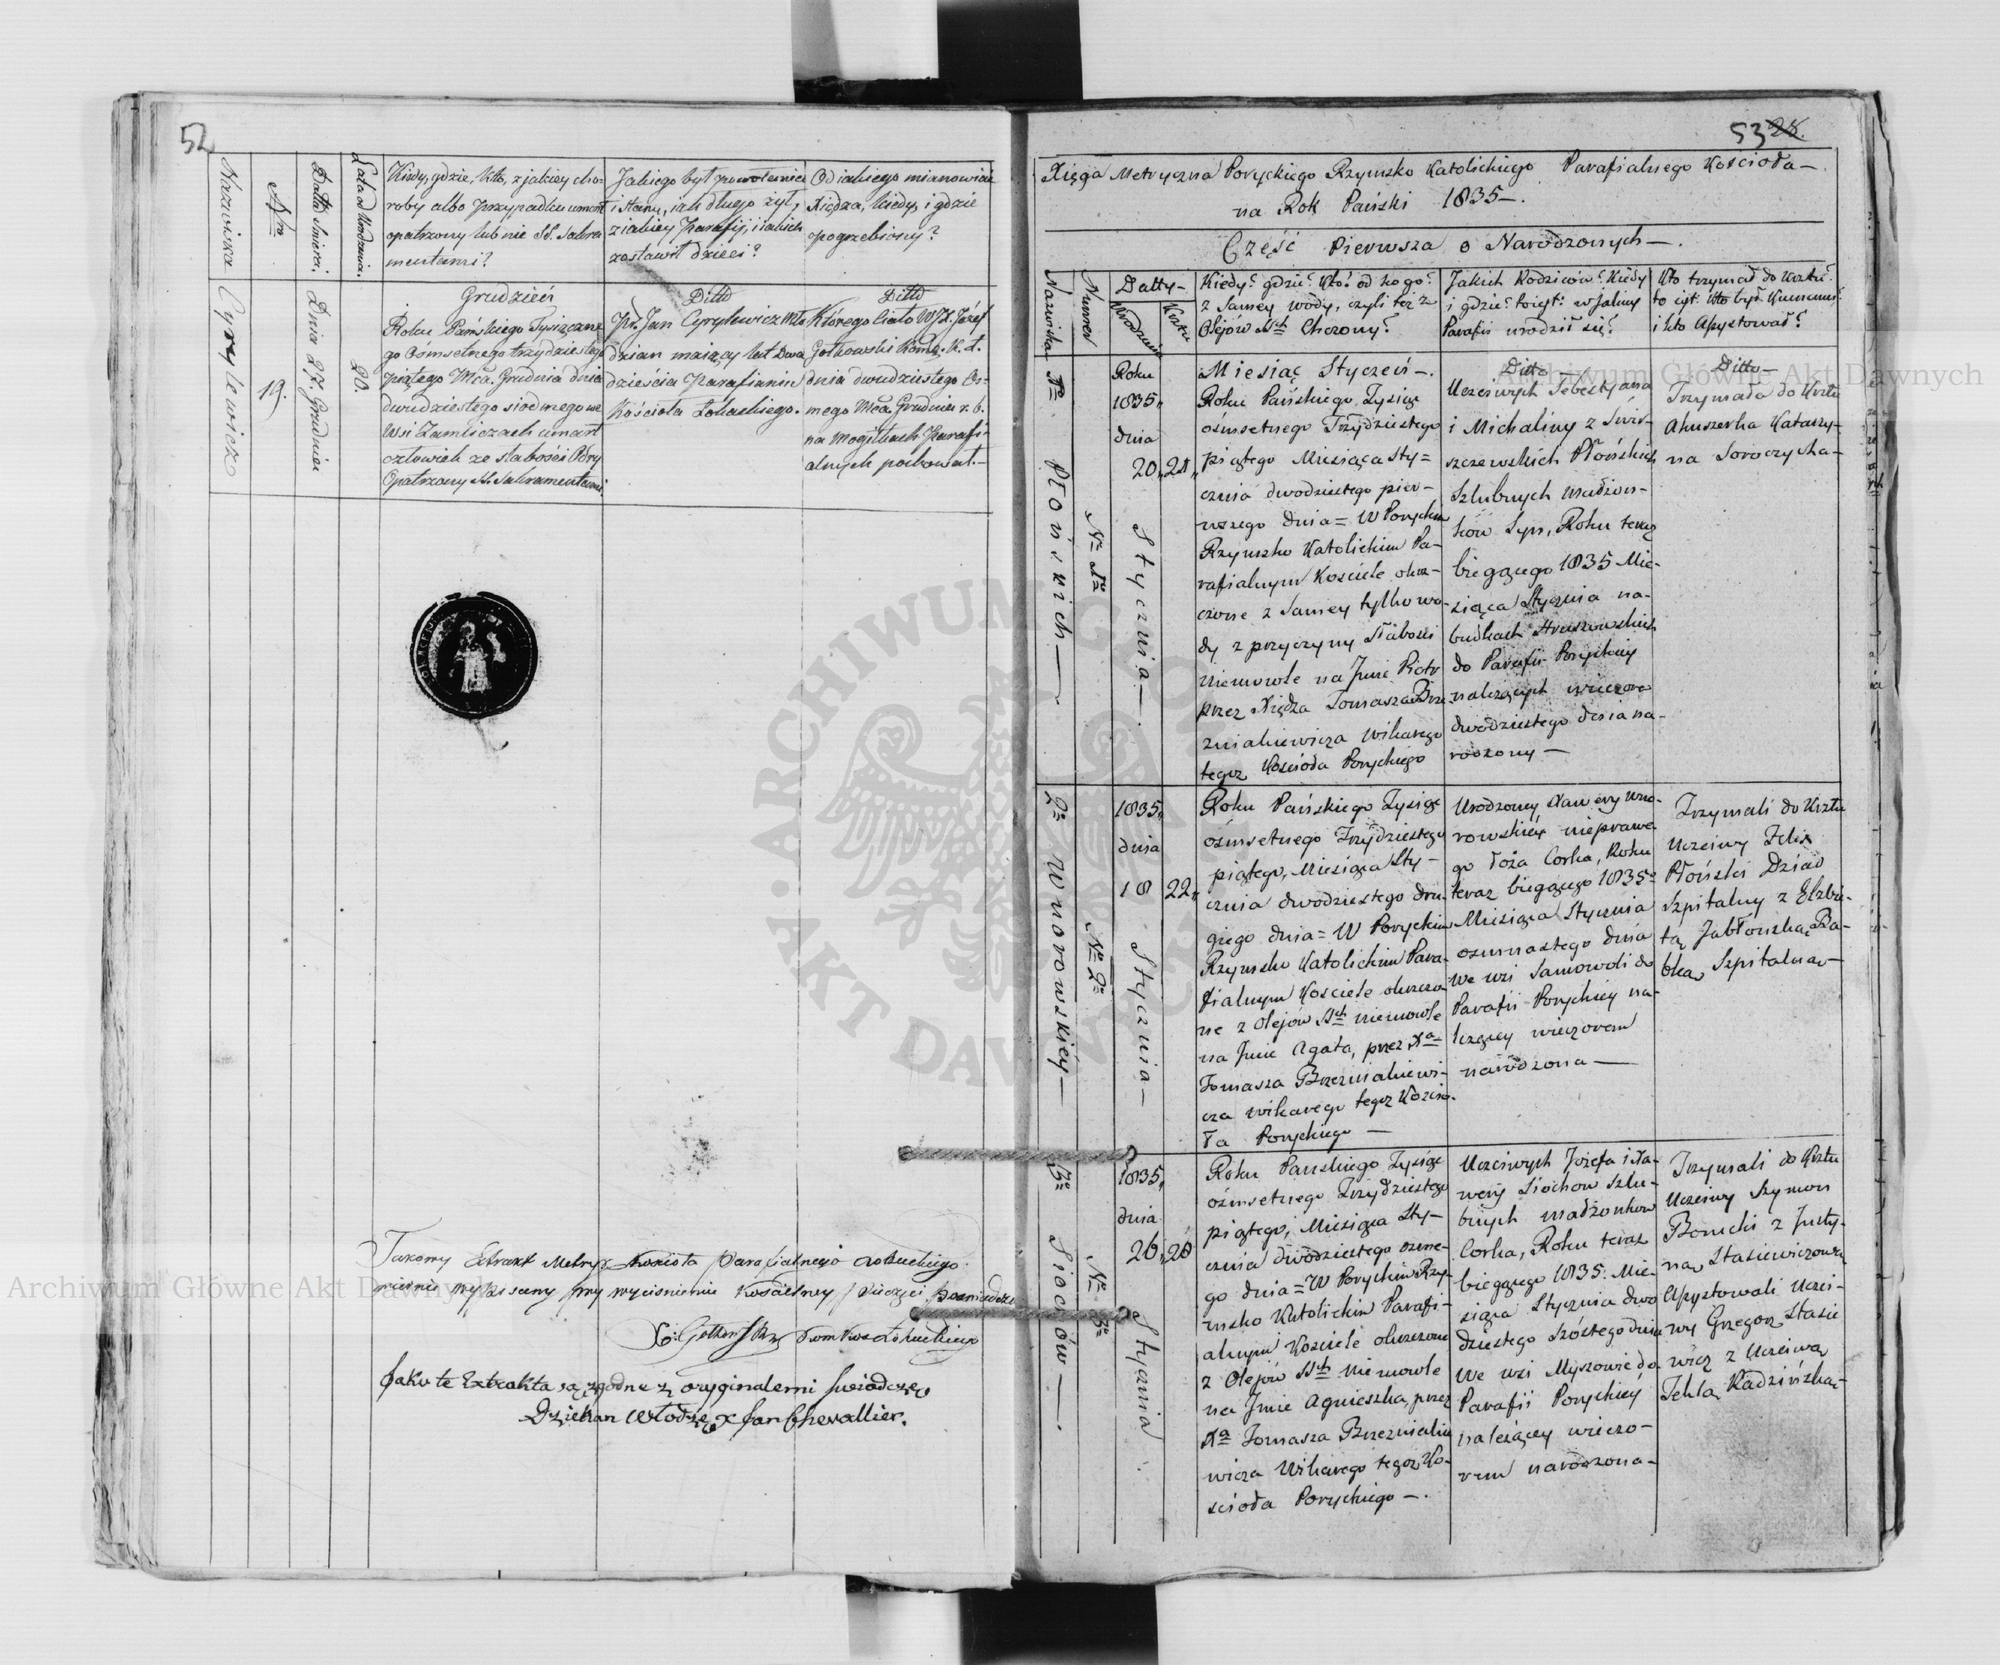 52
Nazwiska
Nro
Datta Śmierci.
Lata od Urodzenia.
Kiedy, gdzie, kto, z jakiey cho-
roby albo przypadku umarł
opatrzony lub nie SS. Sakra
mentami?
Jakiego był powołania
i stanu, jak długo żył,
z jakiey Parafij, i jakich
zostawił dzieci?
Od jakiego mianowicie
Xiędza, kiedy, i gdzie
pogrzebiony?
Cyrylewicz
19.
Dnia 27. Grudnia
20.
Grudzień
Roku Pańskiego Tysiączne
go Ośmsetnego trzydziestego
piątego Mca. Grudnia dnia
dwudziestego siodmego we
Wsi Zamliczach umarł
człowiek ze słabości
Opatrzony SS. Sakramentami
Ditto
Jan Cyrylewicz Mło
dzian maiący lat Dwa
dzieścia Parafianin
Kościoła Łokackiego.
Ditto
Którego ciało WJX. Józef
Gotkowski K. Ł.
dnia dwudziestego Os-
mego Mca. Grudnia r. b.
na Mogiłkach Parafi-
alnych pochował.—
Takowy Extrakt Metryk Kościoła Parafialnego Łokackiego
wiernie wypisany przy wyciśnieniu Kościelney Pieczęci
X. Gotkowski
Jako te Extrakta są zgodne z oryginałemi świadczę
Dziekan Włodz. X Jan Chevallier.
53 28.
Xięga Metryczna Poryckiego Rzymsko Katolickiego Parafialnego Kościoła—
na Rok Pański 1835—.
Część Pierwsza o Narodzonych—.
Nazwiska
Numer
Datty—
Urodzenia
Krztu
Kiedy? gdzie? Kto? od kogo?
z Samey wody, czyli też z
Olejów Sch Chrzczony?
Jakich Rodziców? Kiedy
i gdzie? toiest: w jakiey
Parafii urodził się?
Kto trzymał do Krztu?
to iest: Kto był Kumem?
i kto Assystował?
1o Płońskich—
No 1o
Roku
1835,
dnia
20, 21,
Stycznia—
Miesiąc Styczeń—.
Roku Pańskiego Tysiąc
ośmsetnego Trzydziestego
piątego Miesiąca Sty=
cznia dwodziestego pier-
wszego dnia= W Poryckim
Rzymsko Katolickim Pa-
rafialnym Kościele okrz-
czone z Samey tylko wo-
dy z przyczyny słabości
niemowle na Imie Piotr
przez Xiędza Tomasza Brze-
zniakiewicza Wikarego
tegoz Kościoła Poryckiego
Ditto—
Uczciwych Sebestyana
i Michaliny z Świr-
szczewskich Płońskich
Szlubnych małżon-
ków Syn, Roku teraz
biegącego 1835 Mie-
siąca Stycznia na-
budkach
do Parafii Poryckiey
należących wieczorem
dwódziestego dnia na-
rodzony—
Ditto—
Trzymała do Krztu
Akuszerka Katarzy-
na Soroczycha-
2o Wnorowskiey—
No 2o
1835,
dnia
18 22,
Stycznia—
Roku Pańskiego Tysiąc
ośmsetnego Trzydziestego
piątego, Miesiąca Sty—
cznia dwodziestego dru-
giego dnia= W Poryckim
Rzymsko Katolickim Para-
fialnym Kościele okrzczo-
ne z Olejów Sch niemowle
na Imie Agata, przez Xa
Tomasza Brzezniakiewi-
cza Wikarego tegoz Kościo-
ła Poryckiego—
Urodzoney Xawery Wno-
rowskiéy nieprawe-
go łoża Corka, Roku
teraz biegącego 1835o
Miesiąca Stycznia
osmnastego dnia
we wsi Samowoli do
Parafii Poryckiey na-
leżącey wieczorem
narodzona—
Trzymali do Krztu
Uczciwy Felix
Płoński Dziad
Szpitalny z Elzbie-
tą Jabłońską Ba-
bką Szpitalną—
3o Siochów—.
No 3o
1835,
dnia
26, 28
Stycznia
Roku Pańskiego Tysiąc
ośmsetnego Trzydziestego
piątego, Miesiąca Sty—
cznia dwodziestego osme-
go dnia= W Poryckim Rzy-
msko Katolickim Parafi-
alnym Kościele okrzczone
z Olejów Sch niemowle
na Imie Agnieszka, przez
Xa Tomasza Brzezniakie
wicza Wikarego tegoz Ko-
ścioła Poryckiego—.
Uczciwych Jozefa i Xa-
wery Siochow Szlu-
bnych małżonkow
Corka, Roku teraz
biegącego 1835. Mie-
siąca Stycznia dwo
dziestego szóstego dnia
we wsi Myszowie do
Parafii Poryckiey
należącey wieczo-
rem narodzona—
Trzymali do Krztu
Uczciwy Szymon
Bonucki z Justy-
ną Stasiewiczową
Assystowali Uczci-
wy Grzegorz Stasie
wicz z Uczciwą
Teklą Kadzińską—
Archiwum Główne Akt Dawnych
Archiwum Główne Akt Dawnych
ARCHIWUM GŁÓWNE AKT DAWNYCH